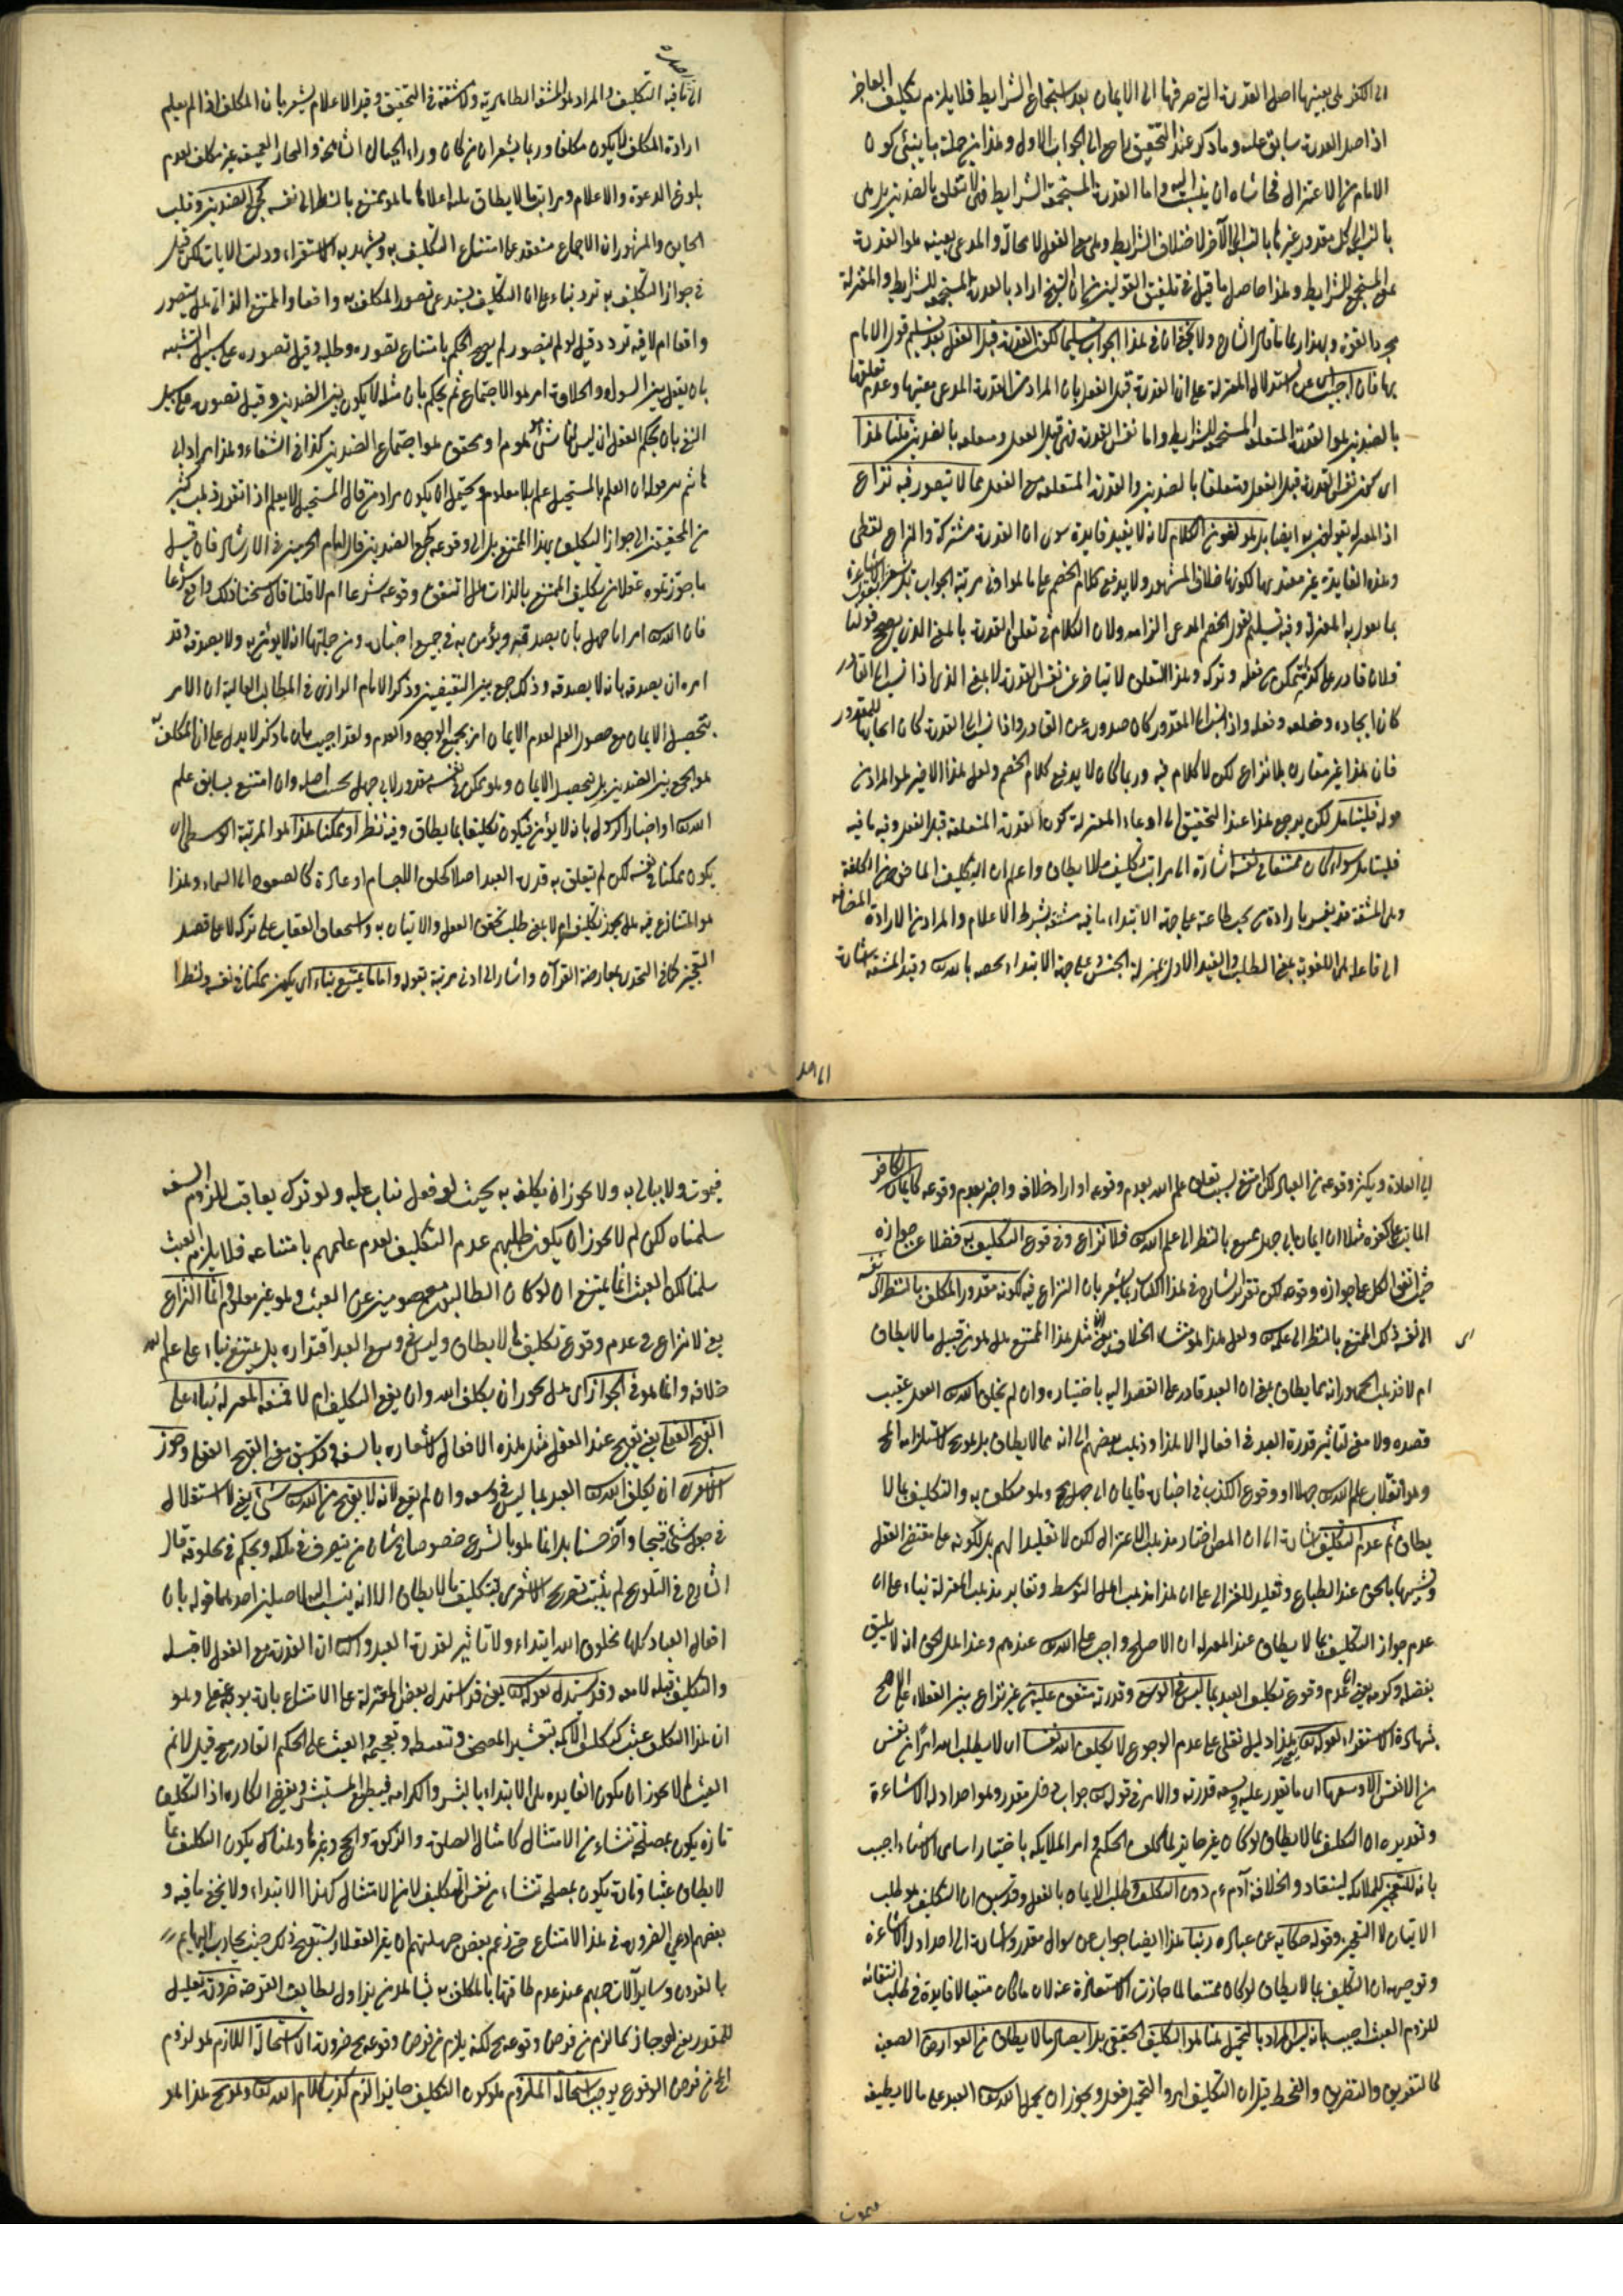 الى الكفر هى بعينها اصل القدرة التى صرفها الى الايمان بعد استجماع الشرايط فلا يلزم تكليف العاجز
اذ اصل القدرة سابق عليه وما ذكر عند التحقيق راجع الى الجواب الاول وهذا من جملة ما ينبئ كون
الامام من الاعتزال فحاشاه ان ينسب اليه واما القدرة المستجمعة الشرايط فهى لا تتعلق بالضدين بل هى
بالنسبة الى كل مقدور غيرها بالنسبة الى الآخر لاختلاف الشرايط وهى مع الفعل لا محالة والمدعى بعينه هو القدرة
على المستجمع الشرايط وهذا حاصل ما قيل فى تلفيق القولين من ان الشيخ اراد بالقدرة المستجمعة للشرايط والمعتزلة
مجرد القوة وبهذا ربما قال الشارح ولا يخفى ان فى هذا الجواب تسليما لكون القدرة قبل الفعل بعد تسليم قول الامام
بها فان اجيب عن استدلال المعتزلة على ان القدرة قبل الفعل بان المراد من القدرة المدعى معيتها وعدم تعلقها
بالضدين هو القدرة المتعلقة المستجمعة للشرايط واما نفس القدرة فهى قبل الفعل ومتعلقة بالضدين قلنا هذا
اى كون نفس القدرة قبل الفعل ومتعلقا بالضدين والقدرة المتعلقة مع الفعل مما لا يتصور فيه نزاع
اذ المعتزلة يقولون به ايضا بل هو لغو من الكلام لانه لا يفيد فايدة سوى ان القدرة مشتركة والنزاع لفظى
وهذه الفايدة غير معتد بها لكونها خلاف المشهور ولا يدفع كلام الخصم على ما هو فى مرتبة الجواب
بما يعول به المعتزلة وفيه تسليم لقول الخصم المدعى الزامه ولان الكلام فى تعلق القدرة بالمعنى الذى يصح قولنا
فلان قادر على كذا متمكن من فعله وتركه وهذا التعلق لا يتاخر عن نفس القدرة لا بمعنى الذى اذا نسب الى القادر
كان ايجاده وخلقه وفعله واذا نسب الى المقدور كان صدوره عن القادر واذا نسب الى القدرة كان ايجابها للمقدور
فان هذا غير مقارن بلا نزاع لكن لا كلام فيه وربما كان لا يدفع كلام الخصم ولعل هذا الاخير هو المراد من
قوله فليتامل لكن يرجع هذا عند التحقيق الى ادعاء المعتزلة كون القدرة المتعلقة قبل الفعل وفيه ما فيه
فليتامل سواء كان ممتنعا فى نفسه اشارة الى مراتب تكليف ما لا يطاق واعلم ان التكليف الماخوذ من الكلفة
وهى المشقة قد يفسر بارادة من يجب طاعته على جهة الابتداء ما فيه مشقة بشرط الاعلام والمراد من الارادة المضافة
الى فاعله هى اللغوية بمعنى الطلب والقيد الاول بمنزلة الجنس وعلى جهة الابتداء يخصه بالله تعالى وقيد المشقة اشارة
الى نافية التكليف والمراد هو المشقة الظاهرية ولا مشقة فى التحقيق وقيد الاعلام يشعر بان المكلف اذا لم يعلم
ارادة المكلف لا يكون مكلفا وربما يشعر ان من كان وراء الجبال الشامخة والبحار العميقة غير مكلف لعدم
بلوغ الدعوة والاعلام ومراتب ما لا يطاق ثلث اعلاها ما هو ممتنع بالنظر الى نفسه كجمع الضدين وقلب
الحقايق والمشهور ان الاجماع منعقد على امتناع التكليف به ويشهد به الاستقراء ودلت الايات لكن قيل
فى جواز التكليف به تردد بناء على ان التكليف يستدعى تصور المكلف به واقعا والممتنع لذاته هل يتصور
واقعا ام لا فيه تردد وقيل لو لم يتصور لم يصح الحكم بامتناع تصوره وطلبه وقيل تصوره على سبيل التشبيه
بان يعقل بين السواد والحلاوة امر هو الاجتماع ثم يحكم بان مثله لا يكون بين الضدين وقيل تصوره على سبيل
النفى بان يحكم العقل انه ليس لنا شئ موهوم او محقق هو اجتماع الضدين كذا فى الشفاء وهذا مراد ابى
هاشم من قوله ان العلم بالمستحيل علم بلا معلوم ويحتمل ان يكون مراد من قال المستحيل لا يعلم اذا تقرر ذهب كثير
من المحققين الى جواز التكليف بهذا الممتنع بل الى وقوعه كجمع الضدين قال امام الحرمين فى الارشاد فان قيل
ما جوزتموه عقلا من تكليف الممتنع بالذات هل اتفق وقوعه شرعا ام لا قلنا قال شيخنا ذلك واقع شرعا
فان الله تعالى امر ابا جهل بان يصدقه ويؤمن به فى جميع اخباره ومن جملتها انه لا يؤمن به ولا يصدقه وقد
امره ان يصدقه بانه لا يصدقه وذلك جمع بين النقيضين وذكر الامام الرازى فى المطالب العالية ان الامر
بتحصيل الايمان مع حصول العلم بعدم الايمان امر بجمع الوجود والعدم ولقد اجيب بان ما ذكر لا يدل على ان المكلف به
هو الجمع بين الضدين بل تحصيل الايمان وهو ممكن فى نفسه مقدور لابى جهل بحسب اصله وان امتنع بسابق علم
الله تعالى او اخبار الرسول بانه لا يؤمن فيكون تكليفا بما يطاق وفيه نظر او ممكنا هذا هو المرتبة الوسطى ان
يكون ممكنا فى نفسه لكن لم يتعلق به قدرة العبد اصلا كخلق الاجسام او عادة كالصعود الى السماء وهذا
هو المتنازع فيه هل يجوز تكليفه ام لا بمعنى طلب تحقق الفعل والاتيان به واستحقاق العقاب على تركه لا على قصد
التعجيز كما فى التحدى بمعارضة القرآن واشار الى ادنى مرتبة بقوله واما ما يمتنع بناء اى يكون ممكنا فى نفسه ولنظرا
الى العادة ويكثر وقوعه من العباد لكن امتنع لسبب تعلق علم الله بعدم وقوعه او اراد خلافه واخبر بعدم وقوعه كايمان الكافر
المائت على كفره مثلا ان ايمان ابى جهل ممتنع بالنظر الى علم الله تعالى فلا نزاع فى وقوع التكليف به فضلا عن جوازه
حيث اتفق الكل على جوازه ووقوعه لكن تقرير الشارح فى هذا الكتاب ربما يشعر بان النزاع فيه لكونه مقدور المكلف بالنظر الى نفسه
الى نفسه لكن الممتنع بالنظر الى علمه تعالى ولعل هذا هو منشأ الخلاف فى ان مثل هذا الممتنع هل هو من قبيل ما لا يطاق
ام لا فذهب الجمهور انه مما يطاق بمعنى ان العبد قادر على القصد اليه باختياره وان لم يخلق الله تعالى الفعل عقيب
قصده ولا معنى لتاثير قدرة العبد فى افعاله الا هذا وذهب بعضهم الى انه مما لا يطاق بل هو محال لاستلزامه المحال
وهو انقلاب علم الله تعالى جهلا او وقوع الكذب فى اخباره فايمان ابى جهل محال وهو مكلف به والتكليف بما لا
يطاق ثم عدم التكليف اشارة الى ان المص اختار مذهب الاعتزال لكن لا تقليدا لهم بل لكونه على مقتضى العقل
عدم جواز التكليف بما لا يطاق عند المعتزلة ان الاصلح واجب على الله تعالى عندهم وعند اهل الحق انه لا يليق
بفضله وكرمه يعنى ان عدم وقوع تكليف العبد بما ليس فى الوسع وقدرته متفق عليه من غير نزاع بين العقلاء على الاصح
بشهادة الاستقراء لقوله تعالى هذا دليل نقلى على عدم الوقوع لا يكلف الله نفسا اى لا يطلب الله امرا من نفس
من الانفس الا وسعها اى ما يقدر عليه ويسعه قدرته والامر فى قوله تعالى جواب دخل مقدر وهو احد ادلة الاشاعرة
وتقديره ان التكليف بما لا يطاق لو كان غير جايز لما كلف الحكيم وامر الملايكة باختيار اسامى الاشياء اجيب
بانه للتعجيز للملايكة لينقاد والخلافة آدم عم دون التكليف وطلب الايمان بالفعل وقد سبق ان التكليف هو طلب
الاتيان لا التعجيز وقوله حكاية عن عباده ربنا هذا ايضا جواب عن سوال مقدر واشارة الى احد ادلة الاشاعرة
وتوجيهه ان التكليف بما لا يطاق لو كان ممتنعا لما جازت الاستعاذة عنه لان ما كان ممتنعا لا فايدة فى طلب انتفائه
للزوم العبث اجيب بانه ليس المراد بالتحميل هنا هو التكليف الحقيقى بل ايصال ما لا يطاق من العوارض الصعبة
كالتغريق والتضريق والقحط قيل ان التكليف امر والتحميل فعل ويجوز ان يحمل الله تعالى العبد على ما لا يطيقه
فيموت ولا يبالى به ولا يجوز ان يكلفه به بحيث لو فعل يثاب عليه ولو ترك يعاقب للزوم السفه
سلمناه لكن لم لا يجوز ان يكون طلبهم عدم التكليف لعدم علمهم بامتناعه فلا يلزم العبث
سلمنا لكن العبث انما يمتنع ان لو كان الطالبين معصومين عن العبث وهو غير معلوم وانما النزاع
يعنى لا نزاع فى عدم وقوع تكليف لما لا يطاق وليس فى وسع العبد اقتداره بل يمتنع بناء على علم الله
خلافه وانما هو فى الجواز اى هل يجوز ان يكلف الله وان يقع التكليف ام لا فمنعه المعتزلة بناء على
القبح العقلى يعنى يقبح عند العقل مثل هذه الافعال لاشعاره بالسفه وقد سبق معنى القبح العقلى وجوز
الاشعرى ان يكلف الله تعالى العبد بما ليس فى وسعه وان لم يقع لانه لا يقبح من الله تعالى شئ يعنى لا استقلال
فى جعل شئ قبيحا وآخر حسنا بل انما هو بالشرع خصوصا فى شان من يتصرف فى ملكه ويحكم فى مخلوقه قال
الشارح فى التلويح لم يثبت تصريح الاشعرى بتكليف ما لا يطاق الا انه ينسب اليه لاصلين احدهما قوله بان
افعال العباد كلها مخلوق الله ابتداء ولا تاثير لقدرة العبد والثانى ان القدرة مع الفعل لا قبله
والتكليف قبله لا معه وقد يستدل بقوله تعالى يعنى قد استدل بعض المعتزلة على الامتناع بانه يوجه عقلى وهو
العبث لم لا يجوز ان يكون الفايدة هى الابتداء بالبشر والكراهة
تارة يكون بمصلحة تنشاء من الامتثال كامثال الصلوة والزكوة والحج وغيرها وهناك يكون التكليف بما
لا يطاق عبثا وتارة يكون بمصلحة تنشاء من نفس التكليف لا من الامتثال كهذا الابتداء ولا يخفى ما فيه و
بعضهم ادعى الضرورة فى هذا الامتناع حتى زعم بعض جهلتهم ان غير العقلاء يستقبح ذلك حيث يحارب البهايم
بالقرون وساير آلات حربهم عند عدم طاقتها
للمقدور يعنى لو جاز لما لزم من فرض وقوعه محال لكنه يلزم من فرض وقوعه محال ضرورة ان استحالة اللازم هو لزوم
المحال من فرض الوقوع يوجب استحالة الملزوم هو كون التكليف جايزا لزم كذب كلام الله تعالى وهو محال هذا هو